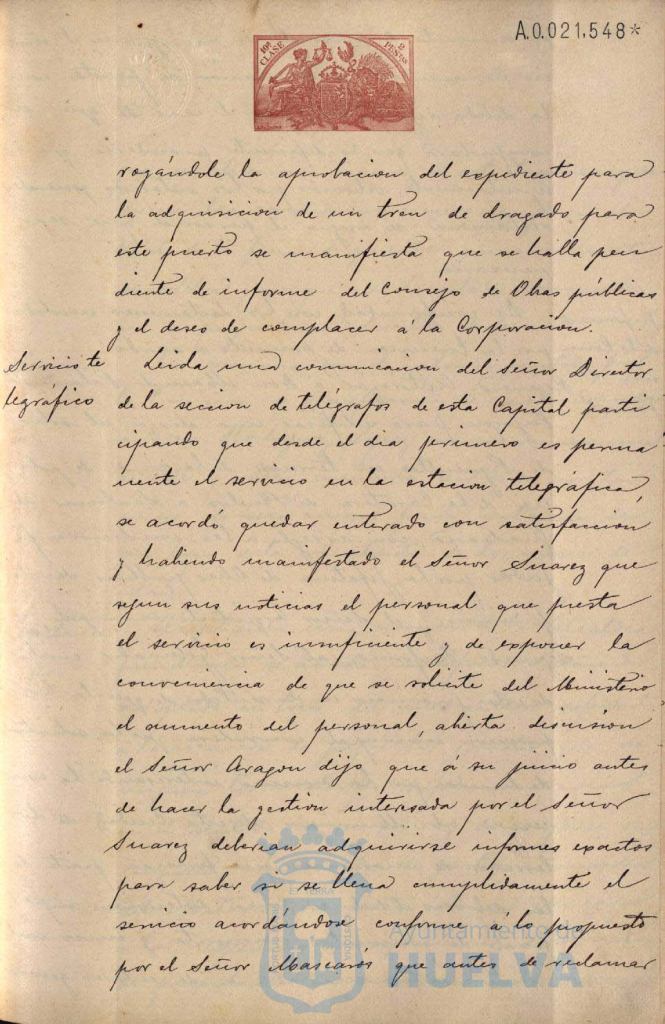 A.0.021,548*
10ª CLASE
2 PESETAS
rogándole la aprobacion del expediente para
la adquisicion de un tren de dragado para
este puerto se manifiesta que se halla pen
diente de informe del Consejo de Obras públicas
y el deseo de complacer á la Corporacion.
Servicio te
legráfico
Leida una comunicacion del Señor Director
de la seccion de telégrafos de esta Capital parti
cipando que desde el dia primero es perma
nente el servicio en la estacion telegráfica,
se acordó quedar enterado con satisfaccion
y habiendo manifestado el Señor Suarez que
segun sus noticias el personal que presta
el servicio es insuficiente y de exponer la
conveniencia de que se solicite del Ministerio
el aumento del personal, abierta discusion
el Señor Aragon dijo que á su juicio antes
de hacer la gestion interesada por el Señor
Suarez deberian adquirirse informes exactos
para saber si se llena cumplidamente el
servicio acordándose conforme á lo propuesto
por el Señor Mascarós que antes de reclamar
Ayuntamiento de
HUELVA